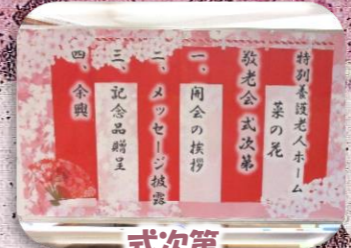 特別養護老人ホーム
菜の花
敬老会 式次第
一、開会の挨拶
二、メッセージ披露
三、記念品贈呈
四、余興
式次第